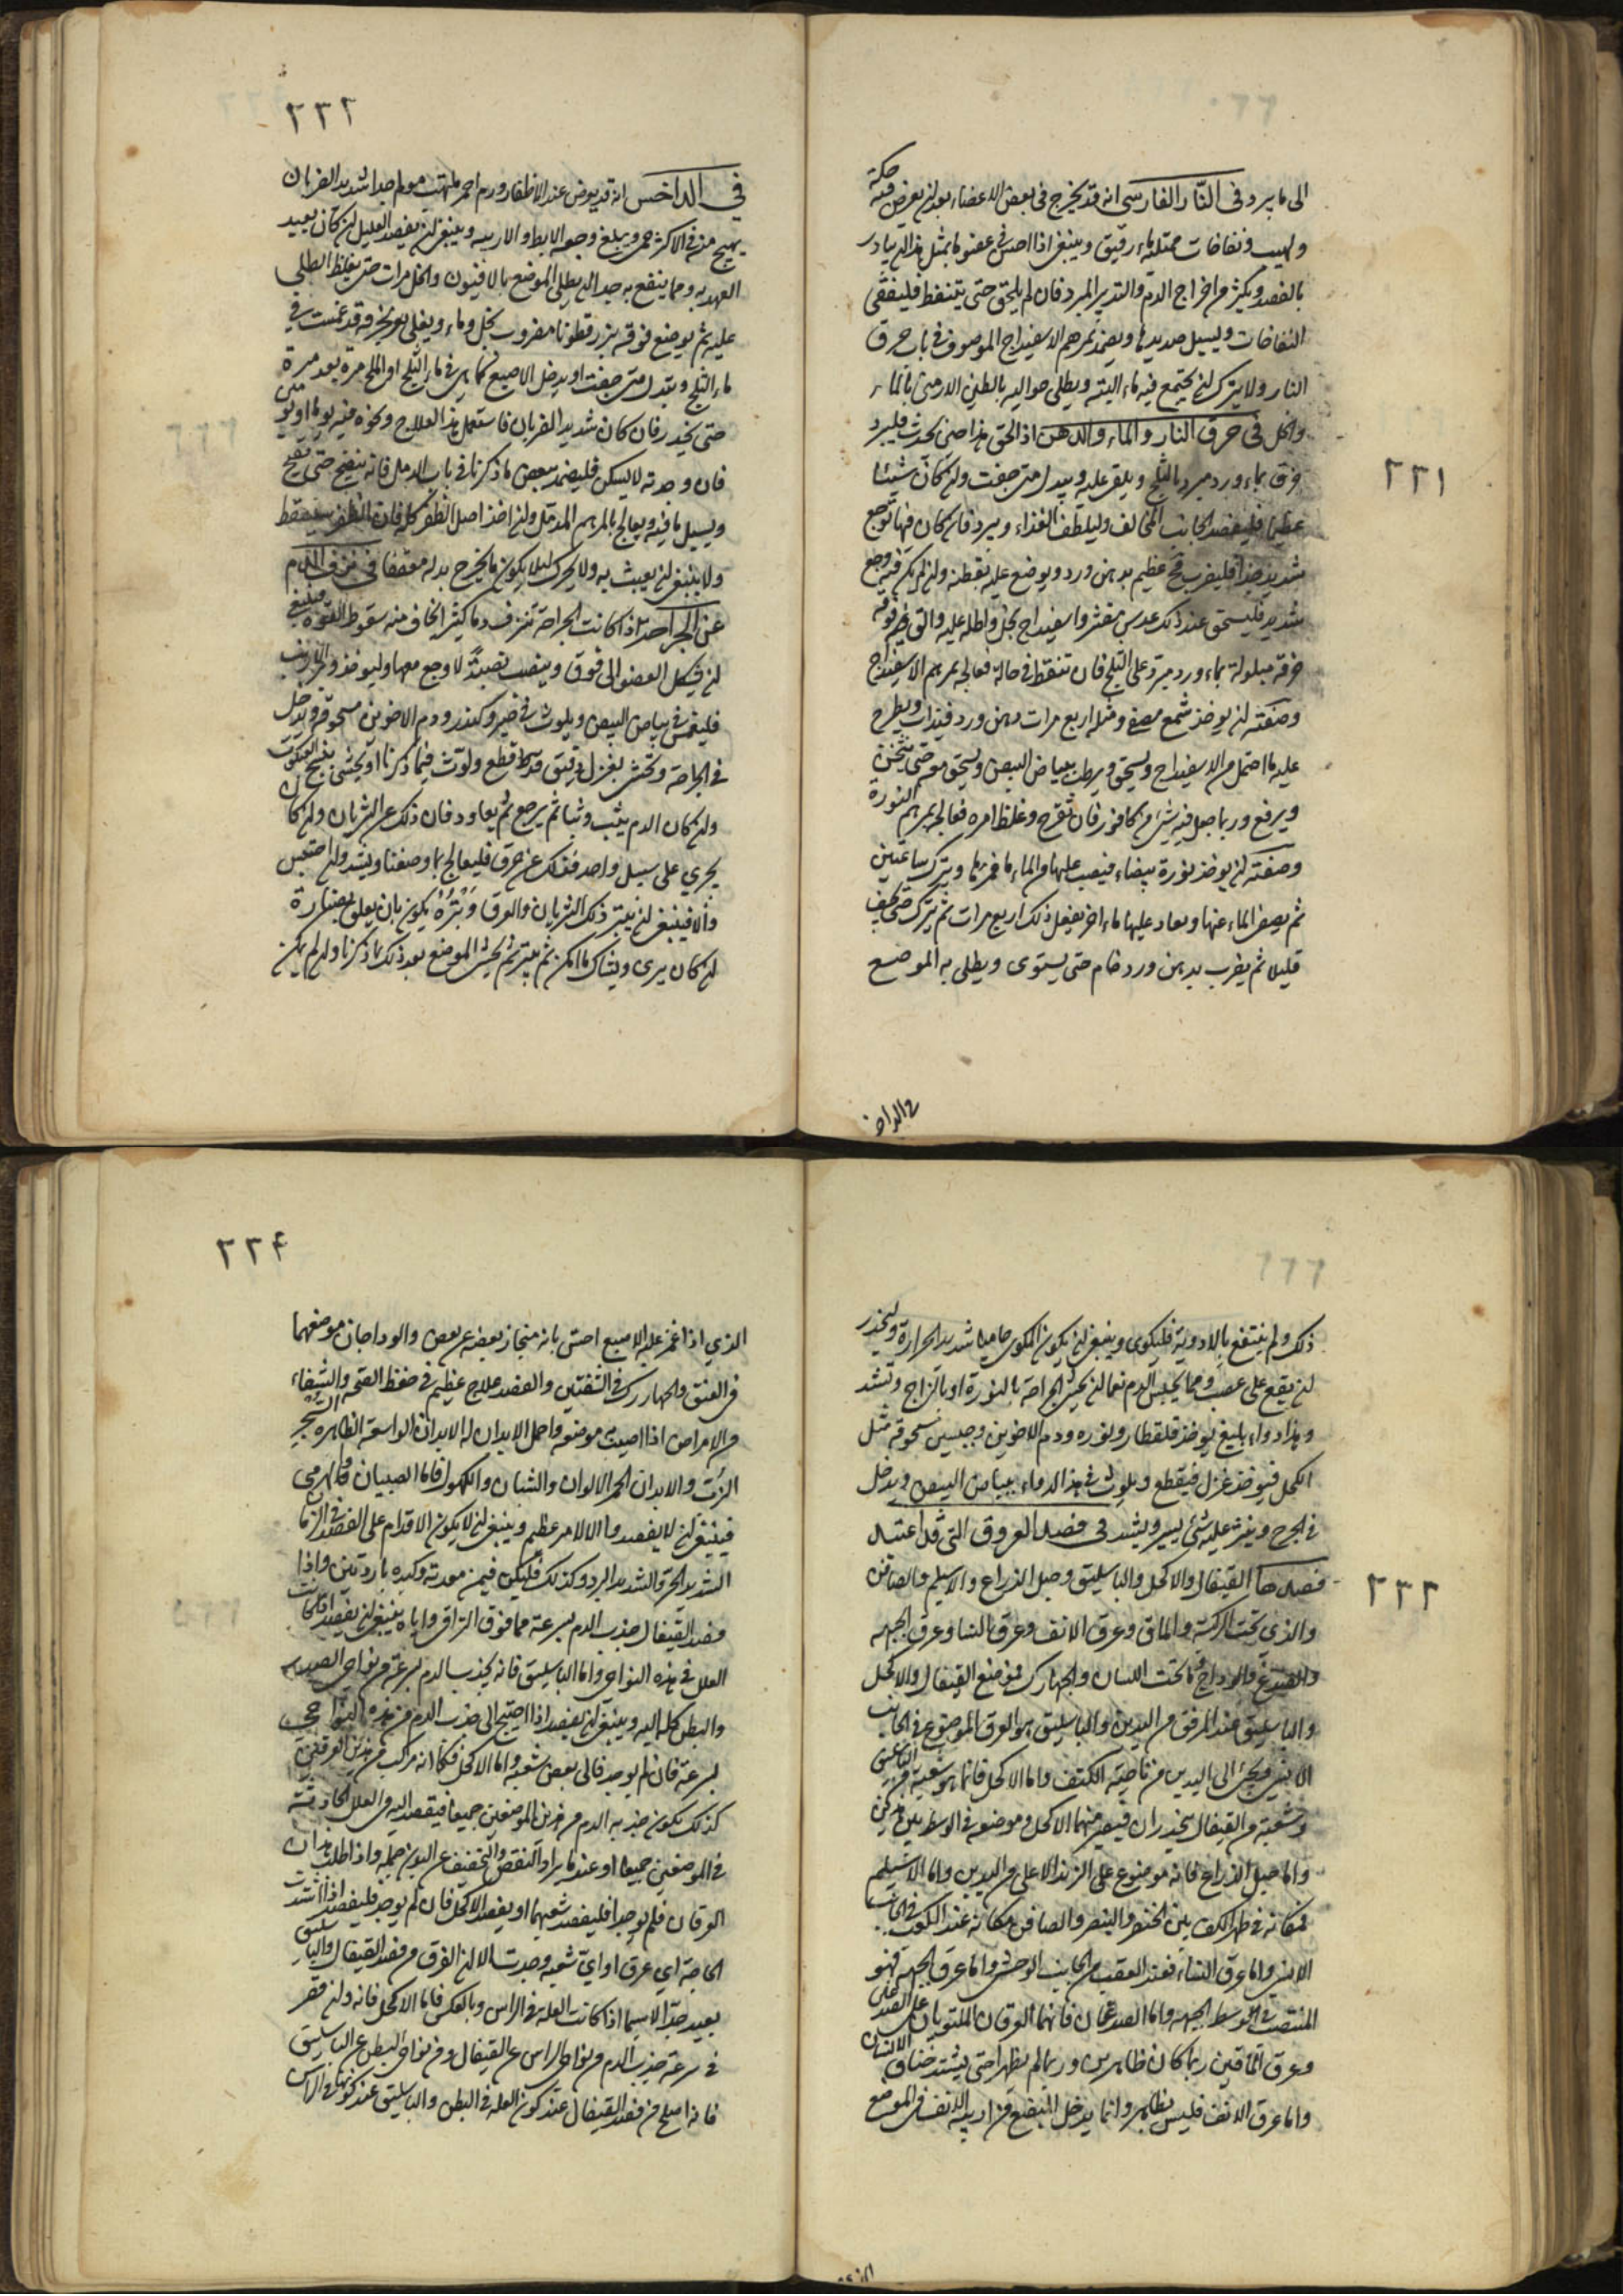 الى ما يبرد في النار الفارسي انه قد يخرج في بعض الاعضاء بعد ان يعرض فيه حكة
ولهيب ونفاخات ممتلية ماء رقيق وينبغي اذا احس في عضو ما بمثل هذا ان يبادر
بالفصد ويكثر من اخراج الدم والتدبير المبرد فان لم يلحق حتى يتنفط فليفقى
النفاخات ويسيل صديدها ويضمد بمرهم الاسفيداج الموصوف في باب حرق
النار ولا يترك ان يجتمع فيه ماء البتة ويطلى حواليه بالطين الارمني بالماء
والخل في حرق النار والماء والدهن اذا لحق هذا حين يحدث فليبرد
خرق بماء ورد مبرد بالثلج ويلقى عليه ويبدل متى جفت وان كان شيئا
عظيما فليفصد الجانب المخالف وليلطف الغذاء ويبرد فان كان فيها توجع
شديد جدا فليضرب مح عظيم بدهن ورد ويوضع عليه بقطنة وان لم يكن فيه وجع
شديد فليسحق عند ذلك عدس مقشر واسفيداج بخل واطله عليه والق فوقه
خرقة مبلولة بماء ورد مبرد على الثلج فان تنفط في حالة فعالجه بمرهم الاسفيداج
وصفته ان يوخذ شمع مصفى ومثله اربع مرات دهن ورد فيذاب ويطرح
عليه ما احتمل من الاسفيداج ويسحق ويرطب ببياض البيض ويسحق معه حتى يثخن
ويرفع وربما جعل فيه شيء من كافور فان تقرح وغلظ امره فعالجه بمرهم النورة
وصفته ان يوخذ نورة بيضاء فيصب عليها من الماء ما غمرها ويترك ساعتين
ثم يصفى الماء عنها ويعاد عليها ماء اخر يفعل ذلك اربع مرات ثم يترك حتى يجف
قليلا ثم يضرب بدهن ورد خام حتى يستوى ويطلى به الموضع
٢٣١
في الداخس
٢٣٢
في الداخس انه قد يعرض عند الاظفار ورم احمر ملتهب مولم جدا شديد الضربان
يهيج منه في الاكثر حمى ويبلغ وجعه الابط والاربية وينبغي ان يفصد العليل ان كان بعيد
العهد به ومما ينفع به جدا ان يطلى الموضع بالافيون والخل مرات حتى يغلظ الطلي
عليه ثم يوضع فوقه بزر قطونا مضروب بخل وماء ويغطى بخرقة قد غمست في
ماء الثلج ويبدل متى جفت او يدخل الاصبع كما هي في ماء الثلج او الملح مرة بعد مرة
حتى يخدر فان كان شديد الضربان فاستعمل هذا العلاج ونحوه فيه يوما او يومين
فان وحدته لا يسكن فليضمد ببعض ما ذكرنا في باب الدمل فانه ينضج حتى يقيح
ويسيل ما فيه ويعالج بالمرهم المدمل وان اخذ اصل الظفر كله فان الظفر سيسقط
ولا ينبغي ان يعبث به ولا يحرك لئلا يكون ما يخرج بدله معقفا في نزف الدم
عن الجراحة اذا كانت الجراحة تنزف دما كثيرا يخاف منه سقوط القوة فينبغي
ان يشكل العضو الى فوق وينصب نصبة لا وجع معها وليوخذ وبر الارنب
فليغمس في بياض البيض ويلوث في صبر وكندر ودم الاخوين مسحوقة ويدخل
في الجراحة وتحشى بغزل رقيق قد قطع ولوث فيما ذكرنا او يحشى بنسج العنكبوت
وان كان الدم يثب وثبا ثم يرجع ثم يعاود فان ذلك عن الشريان وان كان
يجري على سبيل واحد فذلك عن عرق فليعالج بما وصفنا ويشد وان احتبس
والا فينبغي ان يبتر ذلك الشريان والعرق وبتره يكون بان يعلق بصنارة
ان كان يرى ويشال ما امكن ثم يبتر ثم يحشى الموضع بعد ذلك بما ذكرنا وان لم يكن
ذلك ولم ينتفع بالادوية فليكوى وينبغي ان يكون المكوى حاميا شديد الحرارة وليحذر
ان يقع على عصب ومما يحبس الدم نعما ان يحشى الجراحة بالنورة او بالزاج وتشد
وهذا دواء بليغ يوخذ قلقطار ونوره ودم الاخوين وجبسين مسحوقة مثل
الكحل فيوخذ غزل فيقطع ويلوث في هذا الدواء ببياض البيض ويدخل
في الجرح ويذر عليه شيء يسير ويشد في فصد العروق التي قد اعتيد
فصدها القيفال والاكحل والباسليق وحبل الذراع والاسيلم والصافن
والذي تحت الركبة والماق وعرق الانف وعرق النسا وعرق الجبهة
والصدغ والوداج وما تحت اللسان والجهارك فموضع القيفال والاكحل
والباسليق عند المرفق من اليدين والباسليق هو العرق الموضوع في الجانب
الانسي ويجيء الى اليدين من ناحية الكتف واما الاكحل فانما هو شعبة من الباسليق
وشعبة من القيفال ينحدران فيصير منهما الاكحل وموضعه في الوسط بين هذين
واما حبل الذراع فانه موضوع على الزند الاعلى من اليدين واما الاسيلم
فمكانه في ظهر الكف بين الخنصر والبنصر والصافن مكانه عند الكعب في الجانب
الانسي واما عرق النساء فعند العقب من الجانب الوحشي واما عرق الجبهة فهو
المنتصب في وسط الجبهة واما الصدغان فانهما العرقان الملتويان على الصدغين
وعرق الماقين ربما كان ظاهرين وربما لم يظهرا حتى يشتد خناق الانسان
واما عرق الانف فليس بظاهر وانما يدخل المبضع من ارنبة الانف في الموضع
٢٣٣
٢٣۴
الذي اذا غمز عليه الاصبع احس بانه منحاز بعضه عن بعض والوداجان موضعهما
في العنق والجهارك في الشفتين والفصد علاج عظيم في حفظ الصحة والشفاء
من الامراض اذا اصيب موضعه واحمل الابدان له الابدان الواسعة الظاهرة
الزب والابدان الحمر الالوان والشبان والكهول فاما الصبيان والهرمى
فينبغي ان لا يفصدوا الا لامر عظيم وينبغي ان لا يكون الاقدام على الفصد في الزمان
الشديد الحر والشديد البرد وكذلك فليكن فيمن معدته وكبده باردتين واذا
فصد القيفال جذب الدم بسرعة مما فوق التراقي واياه ينبغي ان يفصد اذا كانت
العلل في هذه النواحي واما الباسليق فانه يجذب الدم بسرعة من نواحي الصدر
والبطن كله اليه وينبغي ان يفصد اذا احتيج الى جذب الدم من هذه النواحي
بسرعة فان لم يوجد فالى بعض شعبه واما الاكحل فكما انه مركب من هذين العرقين
كذلك يكون جذبه الدم من هذين الموضعين جميعا فيقصد اليه في العلل الحادثة
في الموضعين جميعا او عند ما يراد النقص والتخفيف عن البدن جملة واذا طلب هذان
العرقان فلم يوجدا فليفصد شعبهما او يفصد الاكحل فان لم يوجد فليفصد اذا اشتدت
الحاجة اي عرق او اي شعبه وجدت الا ان الفرق من فصد القيفال والباسليق
بعيد جدا لا سيما اذا كانت العلة في الراس وبالعكس فاما الاكحل فانه وان قصر
في سرعة جذب الدم من نواحي الراس عن القيفال ومن نواحي البطن عن الباسليق
فانه اصلح من فصد القيفال عند كون العلة في البطن والباسليق عند كونها في الراس